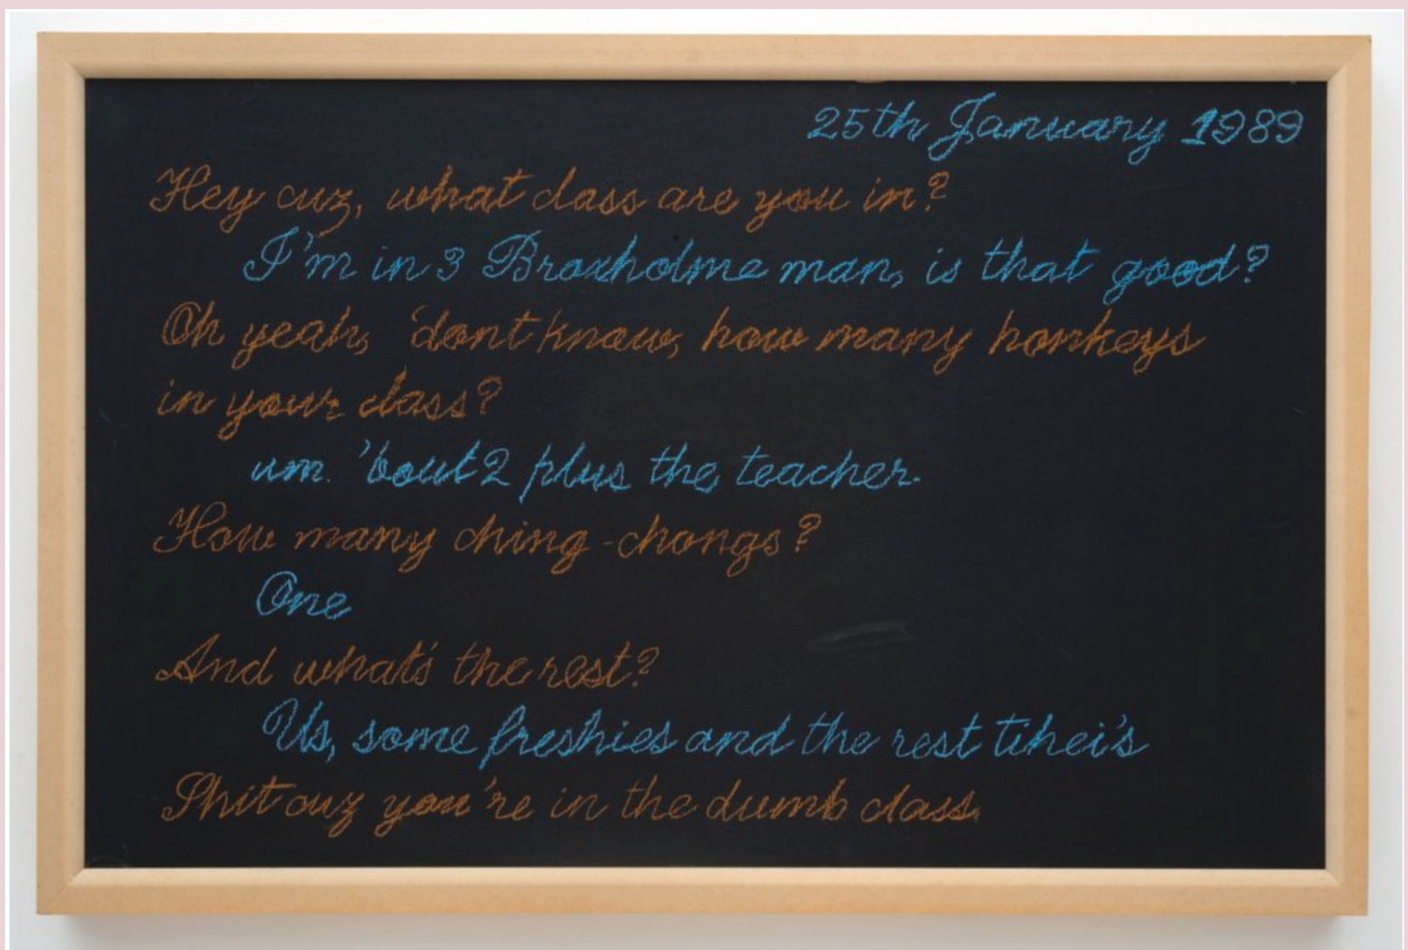 25th January 1989
Hey cuz, what class are you in?
I'm in 3 Broxholme man, is that good?
Oh yeah, 'dont know, how many honkeys
in your class?
um. 'bout 2 plus the teacher.
How many ching-chongs?
One
And what's the rest?
Us, some freshies and the rest tihei's
Shit cuz you're in the dumb class.